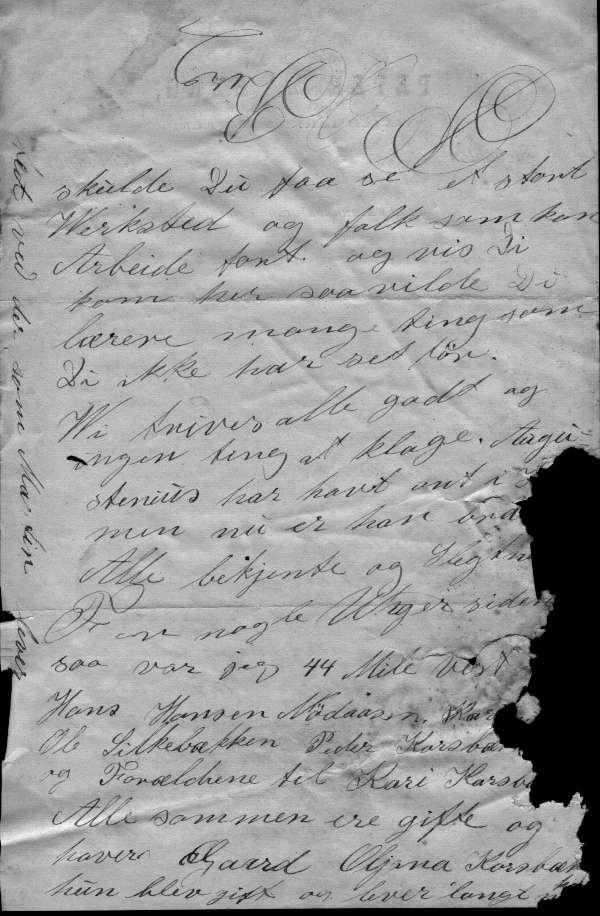 skulde Di faa se et stort
Werksted og folk som kan
Arbeide fort. og vis Di
kom her saa vilde Di
lærere mange ting som
Di ikke har set før.
Wi trives alle godt og
ingen ting at klage. Augu-
stenius har havt ont i
men nu er han
Alle bekjente og
For nogle Uger siden
saa var jeg 44 Mile Vest
Hans Hansen Mödaasen,
Ole Silkebækken Peder Korsbæk
og Forældrene til Kari Korsbæ
Alle sammen ere gifte og
haver Gaard Oljena Korsbæk
hun blev gift og lever langt
ved der som Martin lever